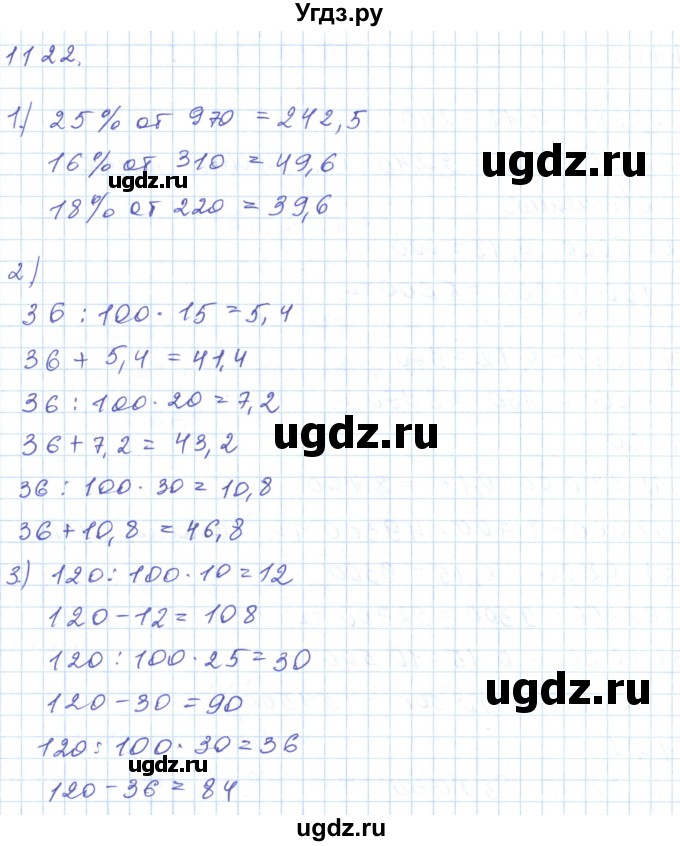 Угдз.ру
1122.
1.) 25% от 970 = 242,5
16% от 310 = 49,6
ugdz.ru
ugdz.ru
18% от 220 = 39,6
2)
36 : 100 · 15 = 5,4
36 + 5,4 = 41,4
36 : 100 · 20 = 7,2
36 + 7,2 = 43,2
ugdz.ru
36 : 100 · 30 = 10,8
36 + 10,8 = 46,8
3.) 120 : 100 · 10 = 12
120 - 12 = 108
120 : 100 · 25 = 30
120 - 30 = 90
ugdz.ru
120 : 100 · 30 = 36
ugdz.ru
120 - 36 = 84
ugdz.ru